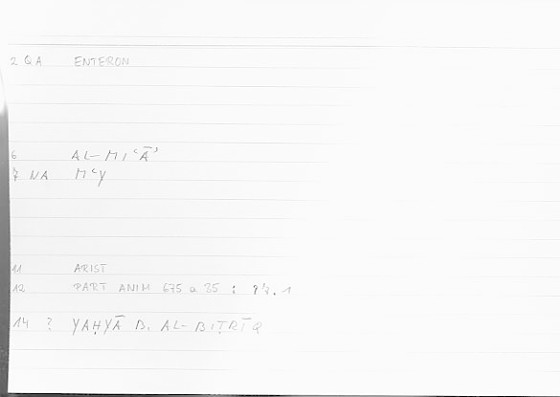 2 QA ENTERON
6 AL-MIʿĀʾ
7 NA MʿY
11 ARIST
12 PART ANIM 675 a 35 : .1
14 ? YAḤYĀ B. AL-BIṬRĪQ